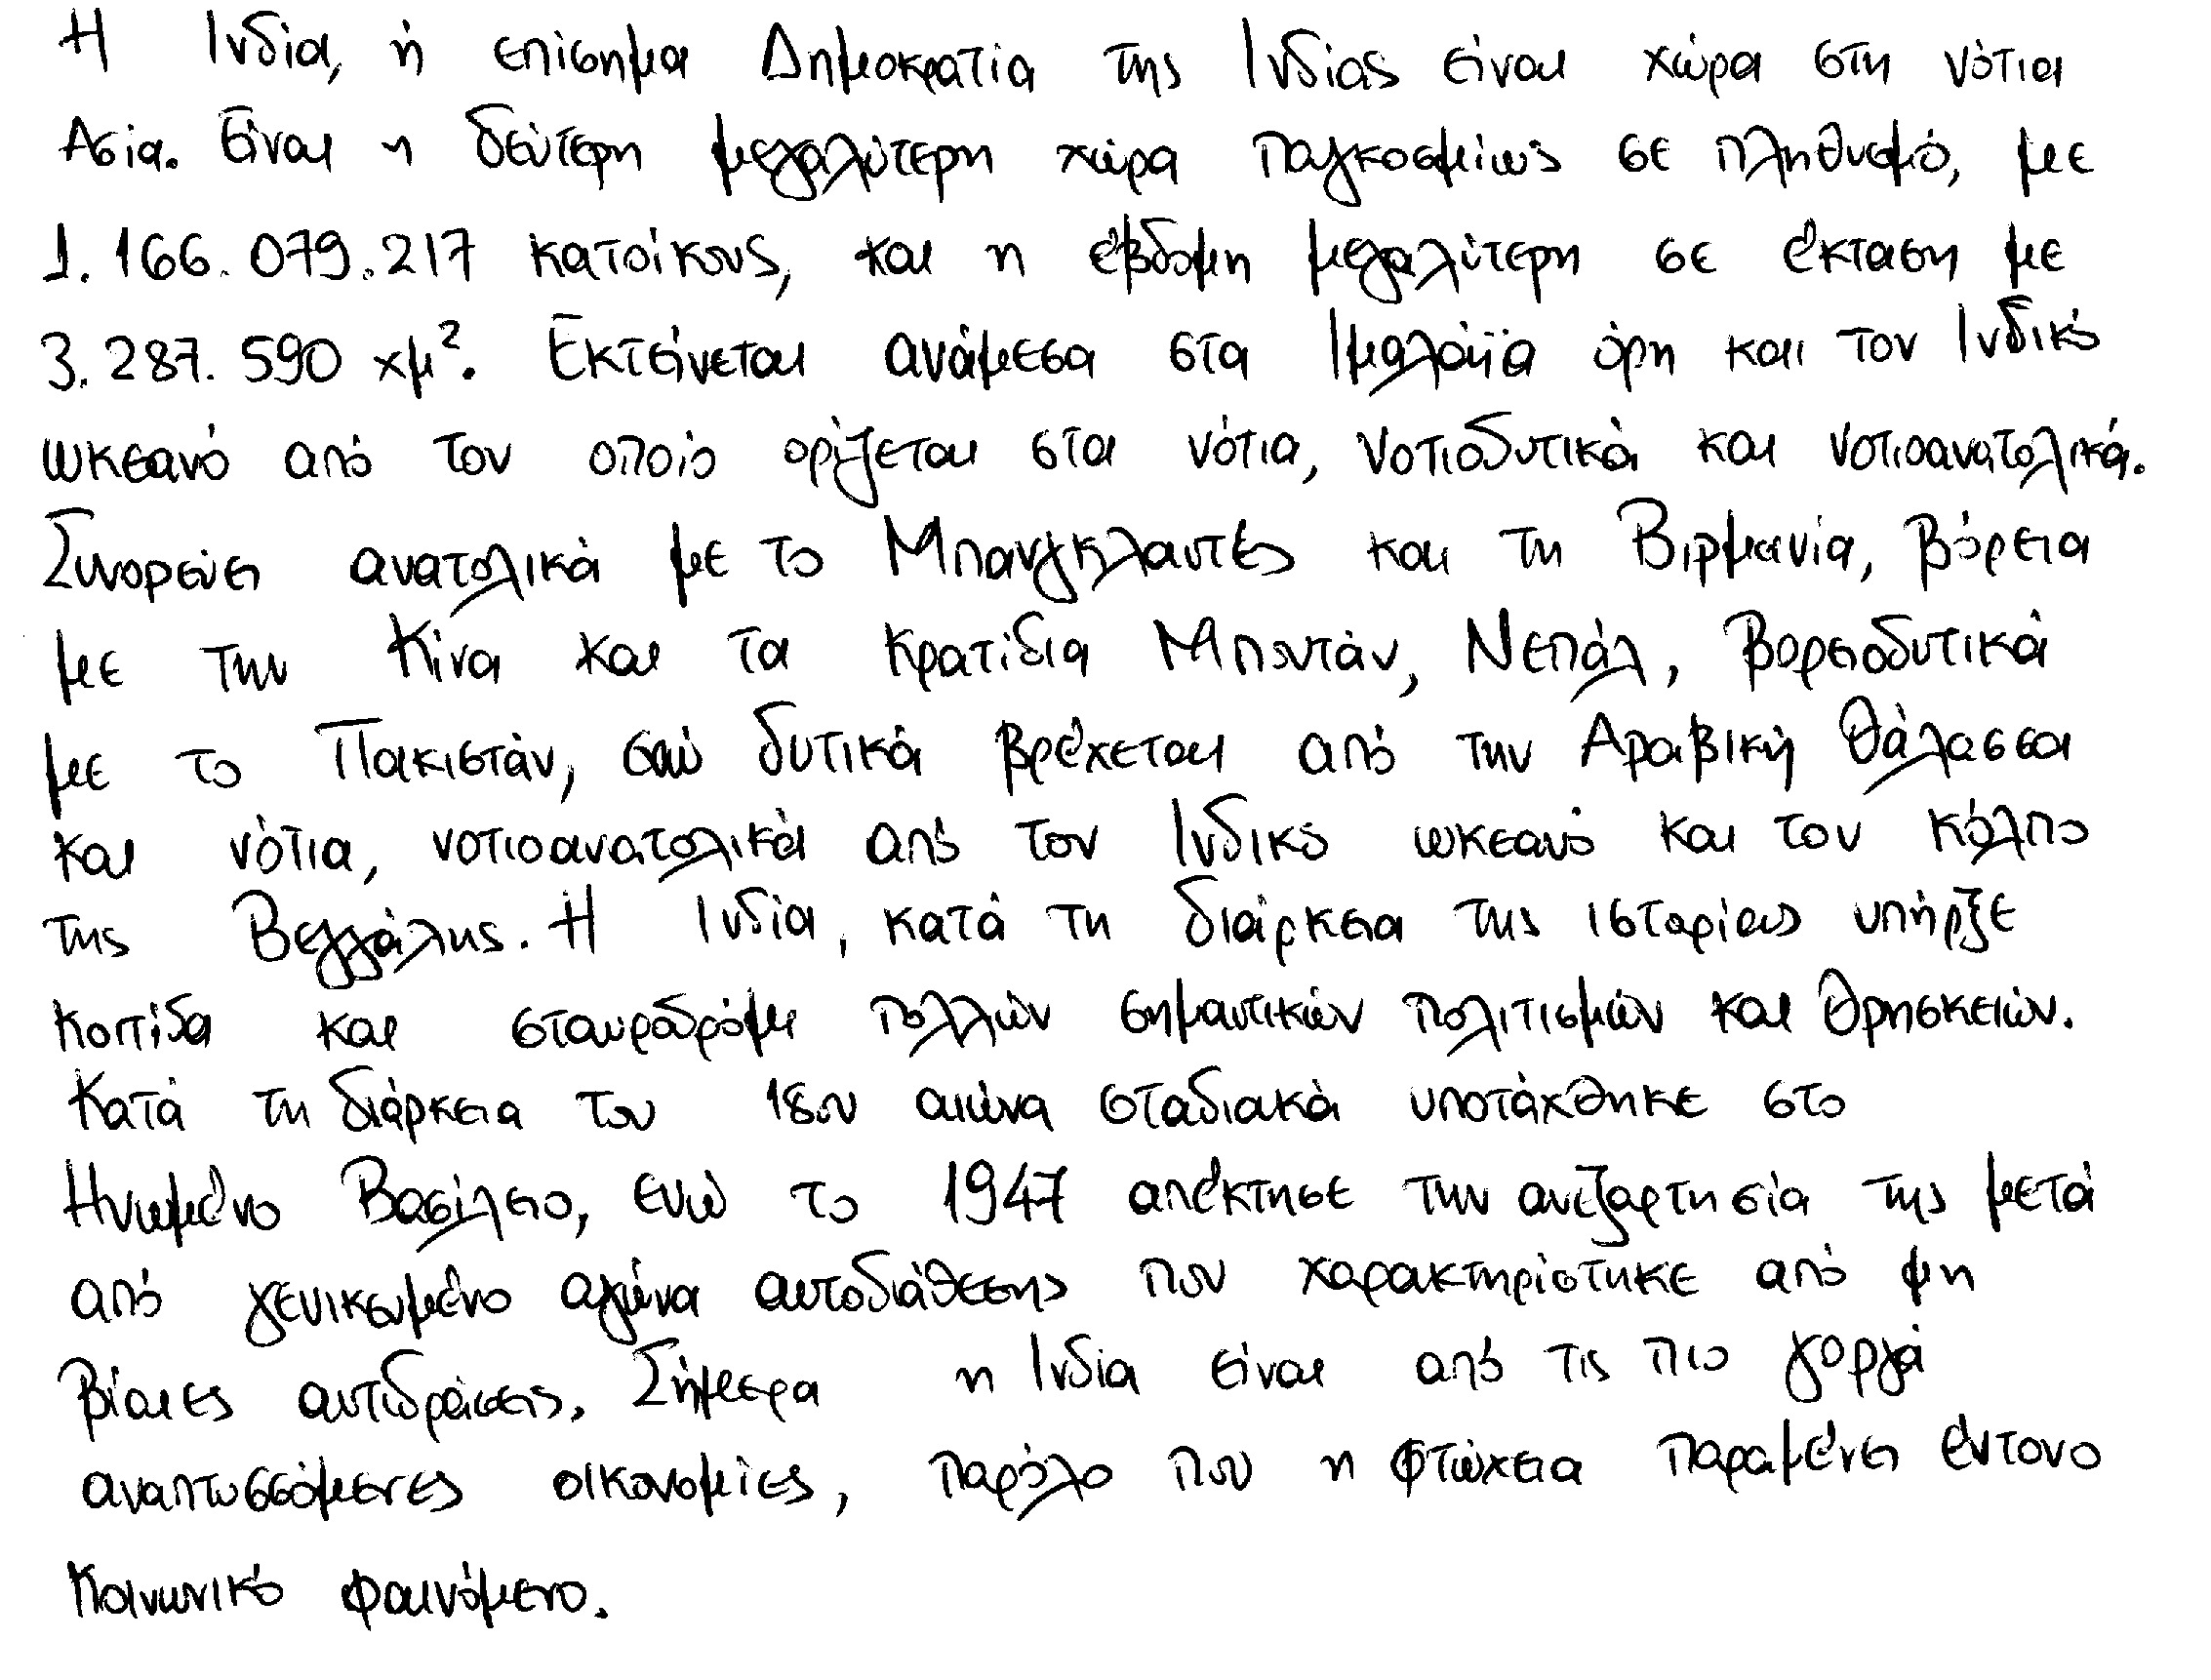 Η Ινδία, ή επίσημα Δημοκρατία της Ινδίας είναι χώρα στη νότια
Ασία. Είναι η δεύτερη μεγαλύτερη χώρα παγκοσμίως σε πληθυσμό, με
1.166.079.217 κατοίκους, και η έβδομη μεγαλύτερη σε έκταση με
3.287.590 χμ². Εκτείνεται ανάμεσα στα Ιμαλάϊα όρη και τον Ινδικό
ωκεανό από τον οποίο ορίζεται στα νότια, νοτιοδυτικά και νοτιοανατολικά.
Συνορεύει ανατολικά με το Μπανγκλαντές και τη Βιρμανία, βόρεια
με την Κίνα και τα κρατίδια Μπουτάν, Νεπάλ, Βορειοδυτικά
με το Πακιστάν, δυτικά βρέχεται από την Αραβική θάλασσα
και νότια, νοτιοανατολικά από τον Ινδικό ωκεανό και τον κόλπο
της Βεγγάλης. Η Ινδία, κατά τη διάρκεια της ιστορίας υπήρξε
κοιτίδα και σταυροδρόμι πολλών σημαντικών πολιτισμών και θρησκειών.
Κατά τη διάρκεια του 18ου αιώνα σταδιακά υποτάχθηκε στο
Ηνωμένο Βασίλειο, ενώ το 1947 απέκτησε την ανεξαρτησία της μετά
από γενικευμένο αγώνα αυτοδιάθεσης που χαρακτηρίστηκε από μη
βίαιες αντιδράσεις. Σήμερα η Ινδία είναι από τις πιο γοργά
αναπτυσσόμενες οικονομίες, παρόλο που η φτώχεια παραμένει έντονο
κοινωνικό φαινόμενο.